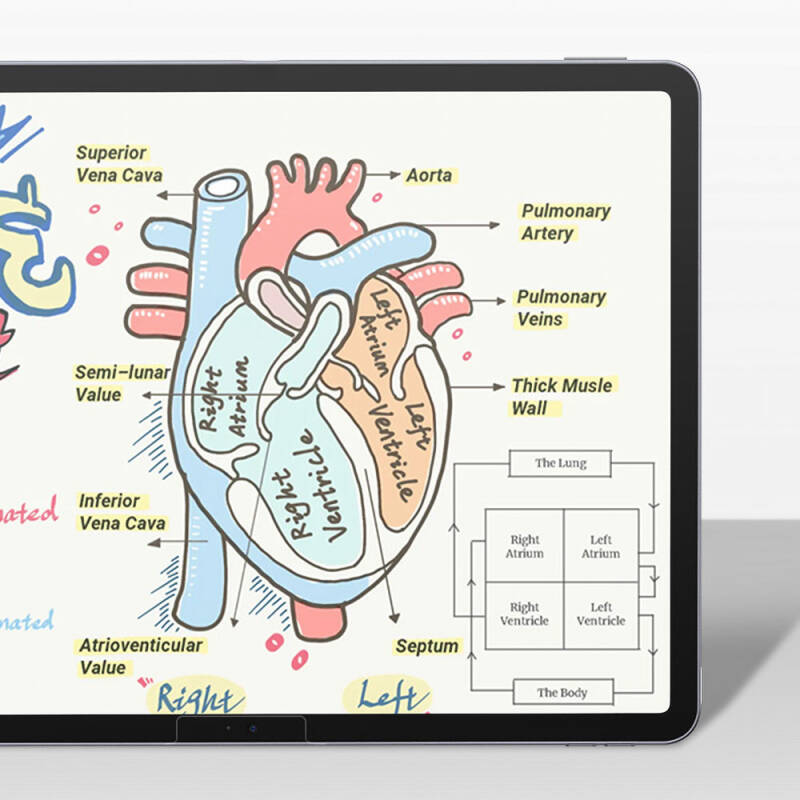 Superior
Vena Cava
Aorta
Pulmonary
Artery
Pulmonary
Veins
Left
Atrium
Semi-lunar
Value
Right
Atrium
Thick Musle
Wall
Left
Ventricle
Right
Ventricle
The Lung
Inferior
Vena Cava
Right
Atrium
Left
Atrium
Right
Ventricle
Left
Ventricle
Atrioventicular
Value
Septum
The Body
Right
Left